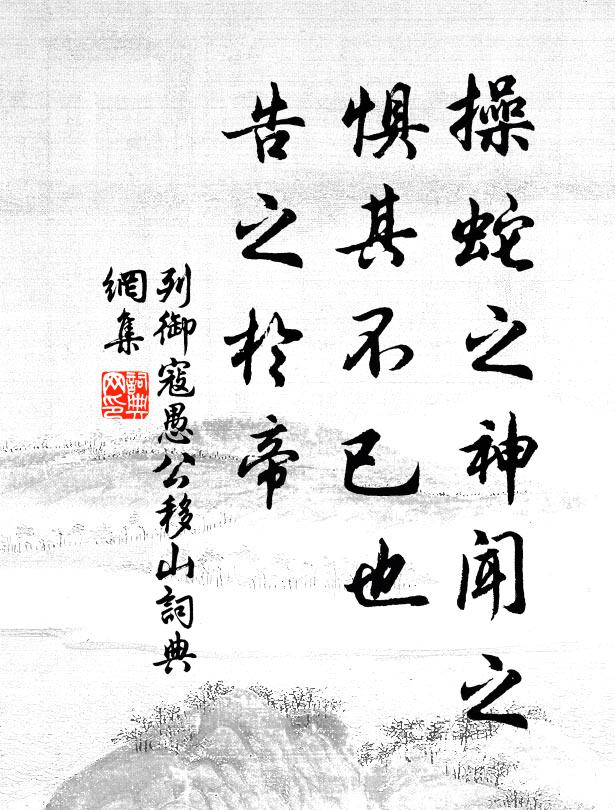 操蛇之神聞之
懼其不已也
告之於帝
列御寇愚公移山詞典
網集
詞典
网印